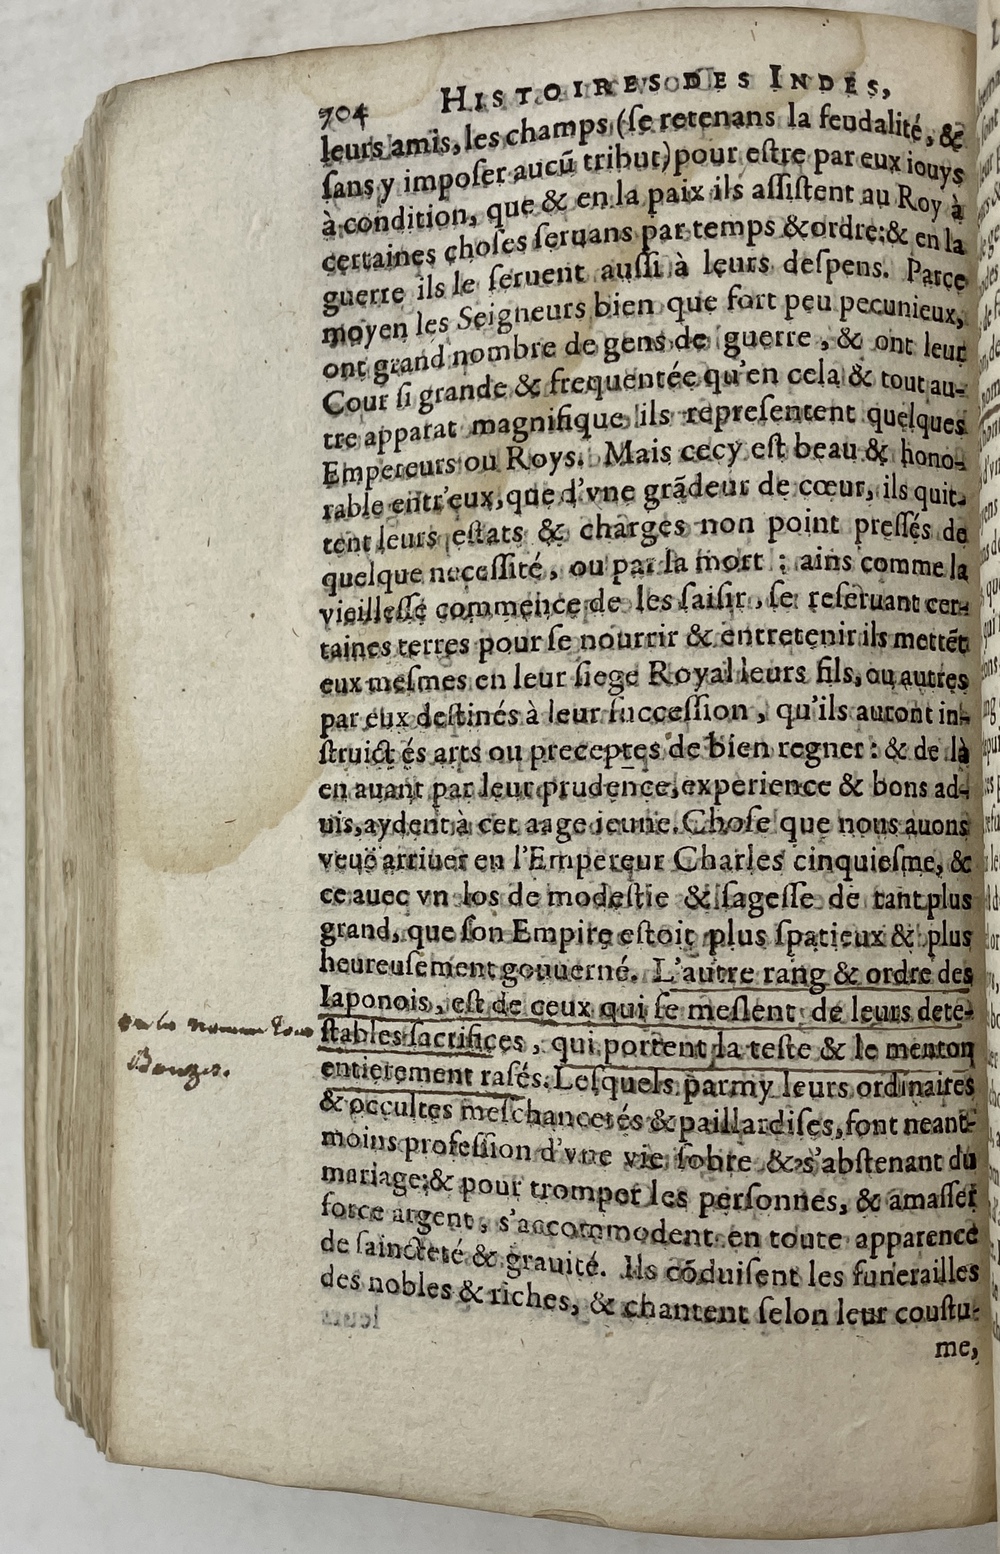 704 HISTOIRES DES INDES,
leurs amis, les champs (ſe retenans la feudalité, &
ſans y impoſer aucũ tribut) pour eſtre par eux iouys
à condition, que & en la paix ils aſſiſtent au Roy à
certaines choſes ſeruans par temps & ordre; & en la
guerre ils le ſeruent auſſi à leurs deſpens. Par ce
moyen les Seigneurs bien que fort peu pecunieux,
ont grand nombre de gens de guerre, & ont leur
Cour ſi grande & frequentée qu'en cela & tout au-
tre apparat magnifique ils repreſentent quelques
Empereurs ou Roys. Mais cecy eſt beau & hono-
rable entr'eux, que d'vne grãdeur de cœur, ils quit-
tent leurs eſtats & charges non point preſſés de
quelque neceſſité, ou par la mort : ains comme la
vieilleſſe commence de les ſaiſir, ſe reſeruant cer-
taines terres pour ſe nourrir & entretenir ils mettẽt
eux meſmes en leur ſiege Royal leurs fils, ou autres
par eux deſtinés à leur ſucceſſion, qu'ils auront in-
ſtruict és arts ou preceptes de bien regner : & de là
en auant par leur prudence, experience & bons ad-
uis, aydent à cet aage ieune. Choſe que nous auons
veuë arriuer en l'Empereur Charles cinquieſme, &
ce auec vn los de modeſtie & ſageſſe de tant plus
grand, que ſon Empire eſtoit plus ſpatieux & plus
heureuſement gouuerné. L'autre rang & ordre des
Iaponois, eſt de ceux qui ſe meſlent de leurs dete-
ſtables ſacrifices, qui portent la teſte & le menton
entierement raſés. Leſquels parmy leurs ordinaires
& occultes meſchancetés & paillardiſes, font neant-
moins profeſſion d'vne vie ſobre & s'abſtenant du
mariage; & pour tromper les perſonnes, & amaſſer
force argent, s'accommodent en toute apparence
de ſaincteté & grauité. Ils cõduiſent les funerailles
des nobles & riches, & chantent ſelon leur couſtu-
me,
on les nomme
Bonzes.